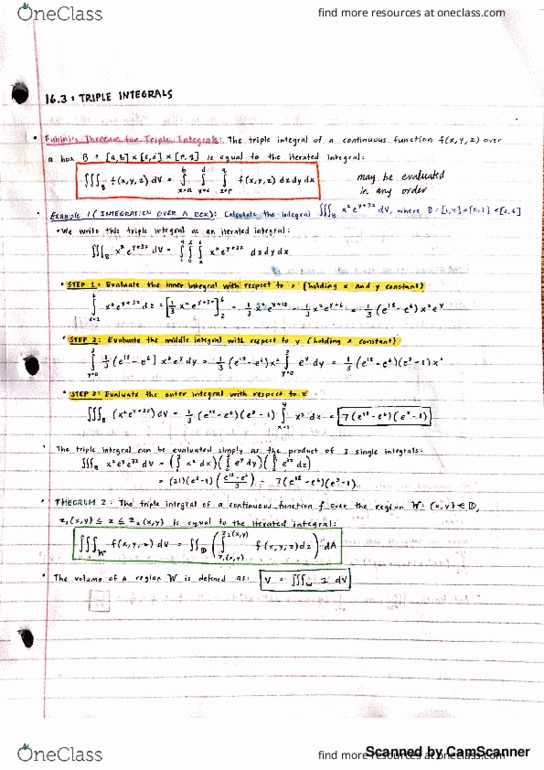 OneClass
find more resources at oneclass.com
16.3: TRIPLE INTEGRALS
• Fubini's Theorem for Triple Integrals: The triple integral of a continuous function f(x,y,z) over
a box B = [a,b] × [c,d] × [p,q] is equal to the iterated integral:
∭_B f(x,y,z) dV = ∫_{x=a}^{b} ∫_{y=c}^{d} ∫_{z=p}^{q} f(x,y,z) dz dy dx
may be evaluated
in any order
• Example 1 (INTEGRATION OVER A BOX): Calculate the integral ∭_B x² e^{y+3z} dV, where B = [1,4] × [0,3] × [2,6]
• We write this triple integral as an iterated integral:
∭_B x² e^{y+3z} dV = ∫_1^4 ∫_0^3 ∫_2^6 x² e^{y+3z} dz dy dx
• STEP 1: Evaluate the inner integral with respect to z (holding x and y constant)
∫_{z=2}^{6} x² e^{y+3z} dz = [1/3 x² e^{y+3z}]_2^6 = 1/3 x² e^{y+18} - 1/3 x² e^{y+6} = 1/3 (e^{18} - e^6) x² e^y
• STEP 2: Evaluate the middle integral with respect to y (holding x constant)
∫_{y=0}^{3} 1/3 (e^{18} - e^6) x² e^y dy = 1/3 (e^{18} - e^6) x² ∫_{y=0}^{3} e^y dy = 1/3 (e^{18} - e^6)(e^3 - 1) x²
• STEP 3: Evaluate the outer integral with respect to x
∭_B (x² e^{y+3z}) dV = 1/3 (e^{18} - e^6)(e^3 - 1) ∫_{x=1}^{4} x² dx = 7(e^{18} - e^6)(e^3 - 1)
• The triple integral can be evaluated simply as the product of 3 single integrals:
∭_B x² e^y e^{3z} dV = (∫_1^4 x² dx)(∫_0^3 e^y dy)(∫_2^6 e^{3z} dz)
= (21)(e^3 - 1)((e^{18} - e^6)/3) = 7(e^{18} - e^6)(e^3 - 1)
• THEOREM 2: The triple integral of a continuous function f over the region W: (x,y) ∈ D,
z₁(x,y) ≤ z ≤ z₂(x,y) is equal to the iterated integral:
∭_W f(x,y,z) dV = ∬_D (∫_{z₁(x,y)}^{z₂(x,y)} f(x,y,z) dz) dA
• The volume of a region W is defined as: V = ∭_W 1 dV
OneClass
find more resources at oneclass.com
Scanned by CamScanner